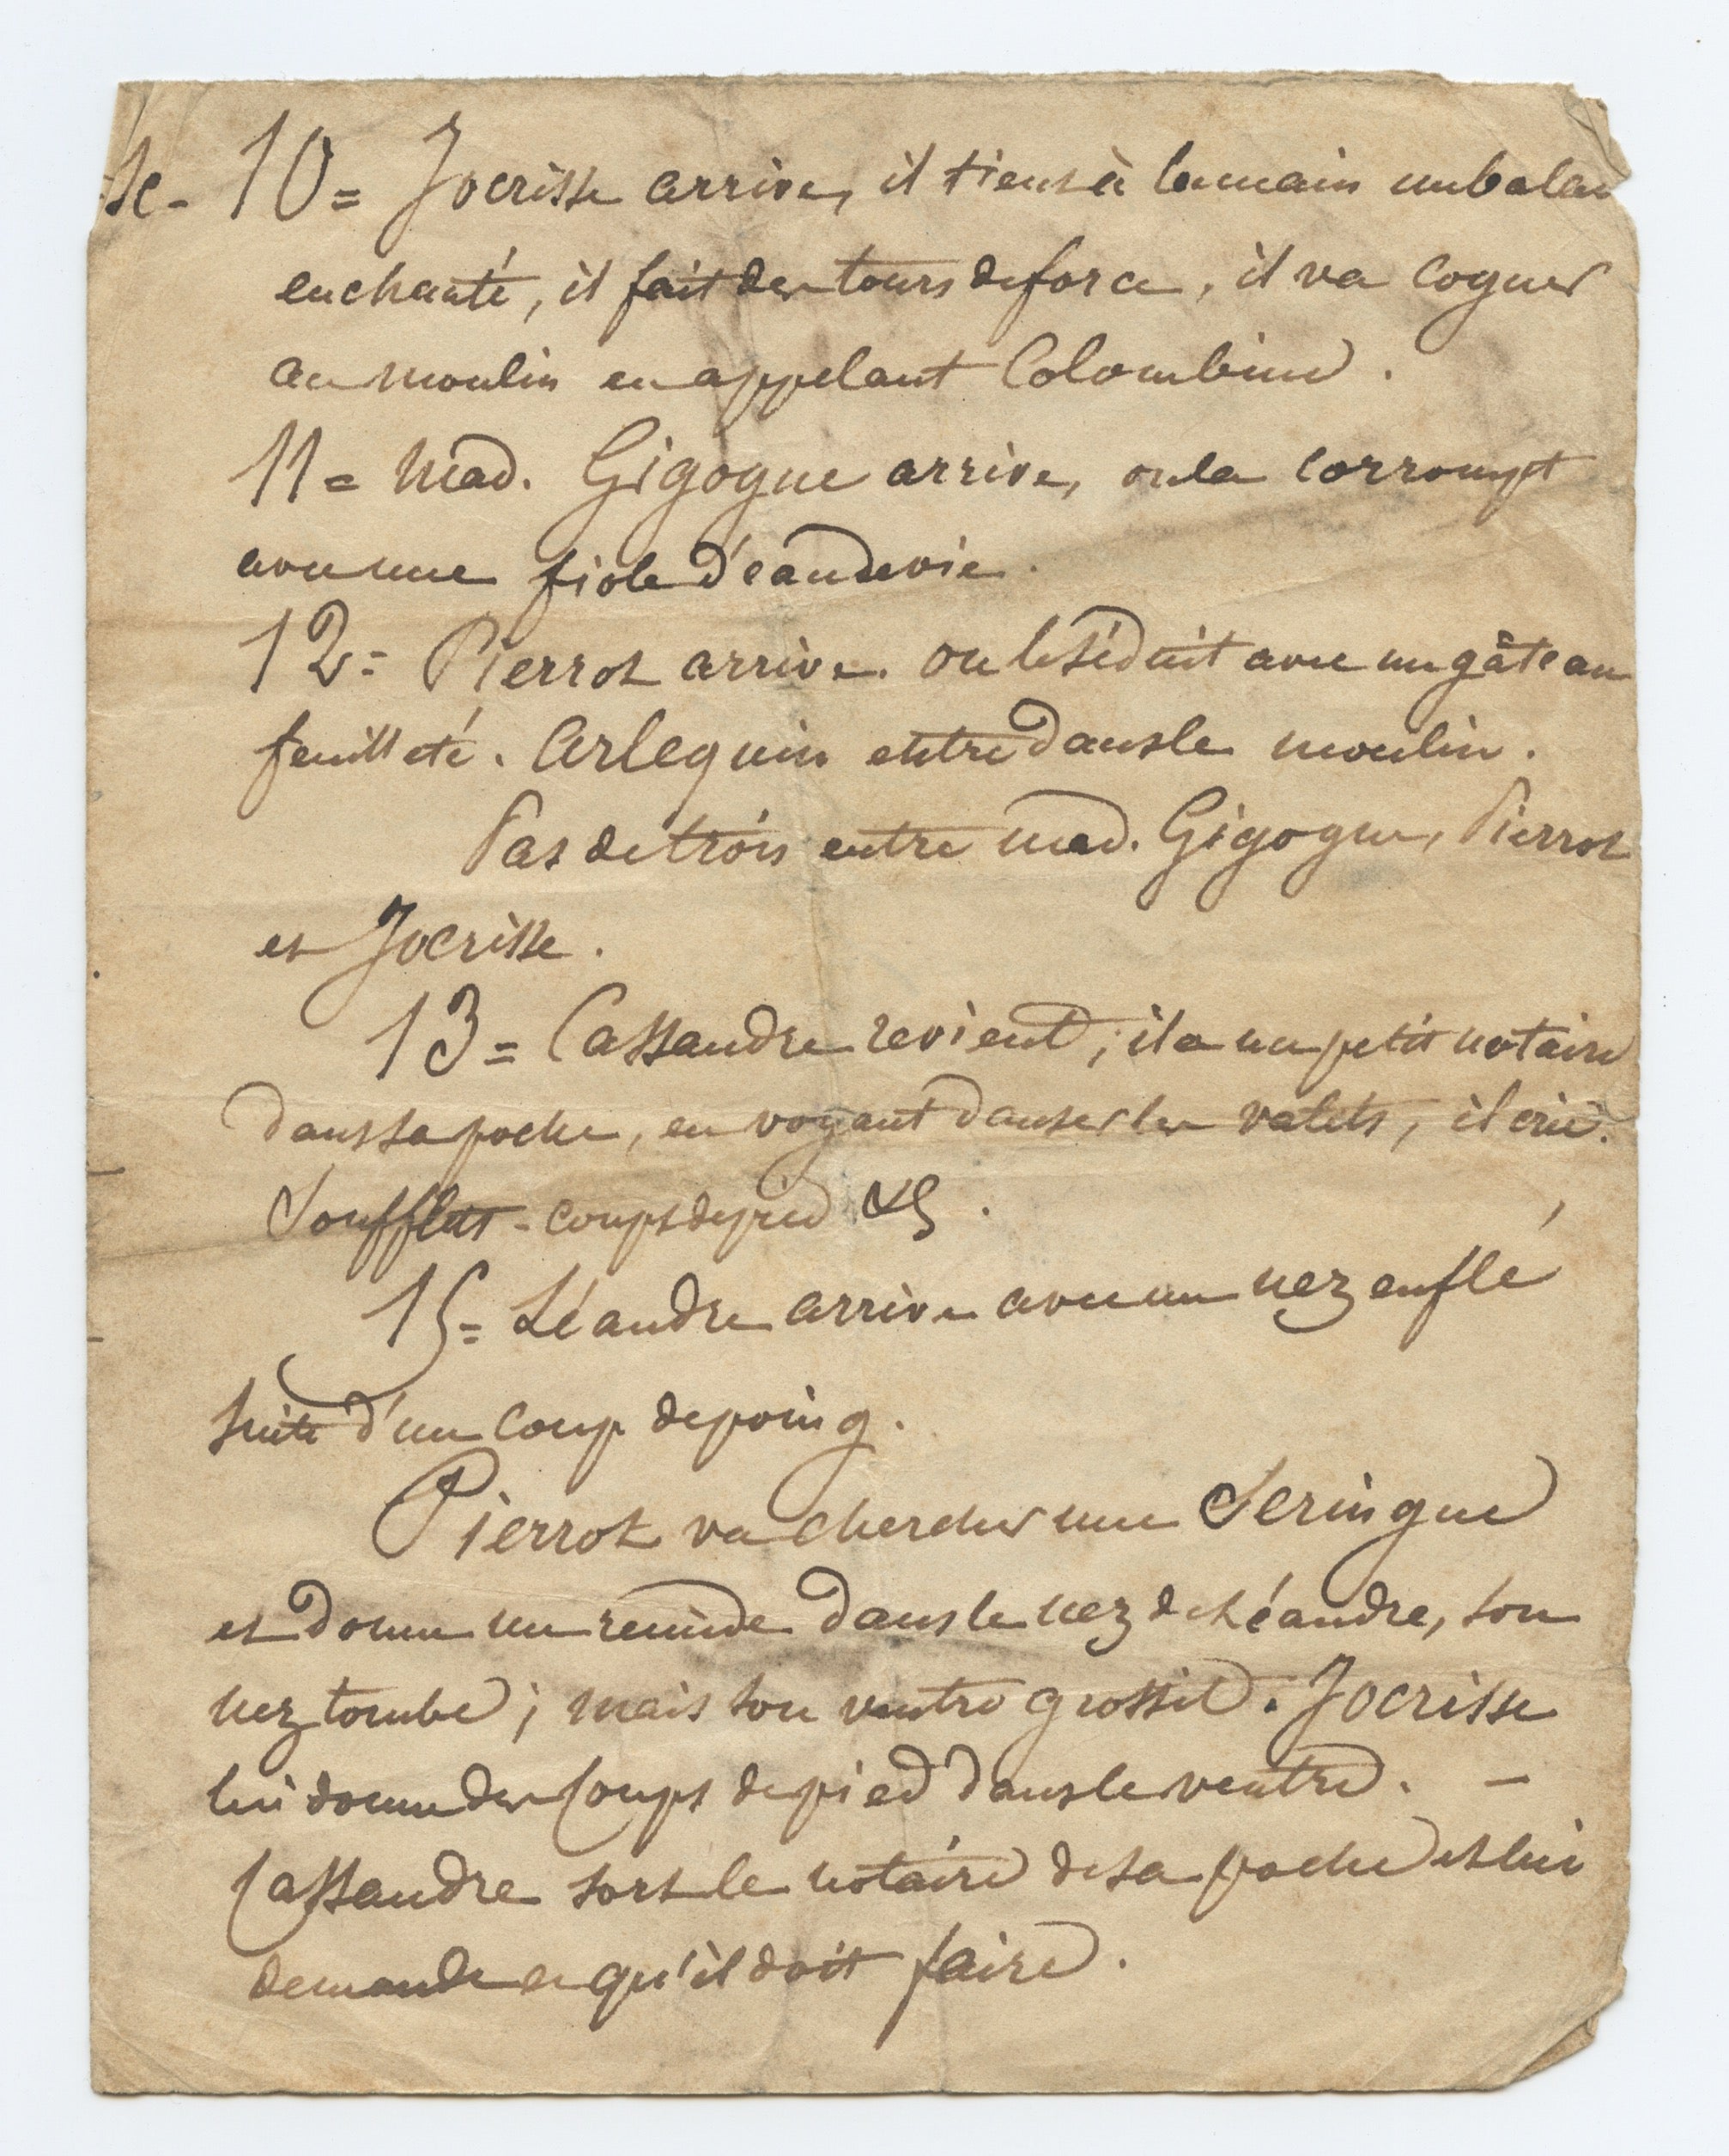 Sc- 10 = Jocrisse arrive, il tient à la main un balai
enchanté, il fait des tours de force, il va cogner
au moulin en appelant Colombine.
11 = Mad. Gigogne arrive, on la corrompt
avec une fiole d'eau de vie.
12 = Pierrot arrive. on le séduit avec un gâteau
feuilleté. Arlequin entre dans le moulin.
Pas de trois entre mad. Gigogne, Pierrot
et Jocrisse.
13 = Cassandre revient, il a un petit notaire
dans sa poche, en voyant danser les valets, il crie.
Soufflets - coups de pied &c.
15 = Léandre arrive avec un nez enflé
suite d'un coup de poing.
Pierrot va chercher une Seringue
et donne un remède dans le nez de Léandre, son
nez tombe; mais son ventre grossit. Jocrisse
lui donne des coups de pied dans le ventre. —
Cassandre sort le notaire de sa poche et lui
demande ce qu'il doit faire.